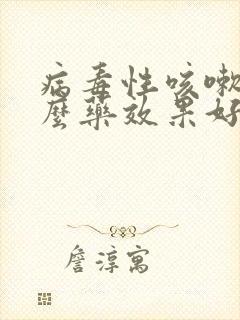 病毒性咳嗽
麼藥效果好
詹淳寓